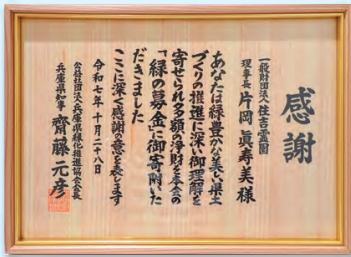 感謝
一般財団法人 住吉霊園
理事長 片岡 眞寿美 様
あなたは緑豊かな美しい県土
づくりの推進に深い御理解を
寄せられ多額の浄財を本会の
「緑の募金」に御寄附いた
だきました
ここに深く感謝の意を表します
令和七年十月二十八日
公益社団法人兵庫県緑化推進協会会長
兵庫県知事 齋藤元彦